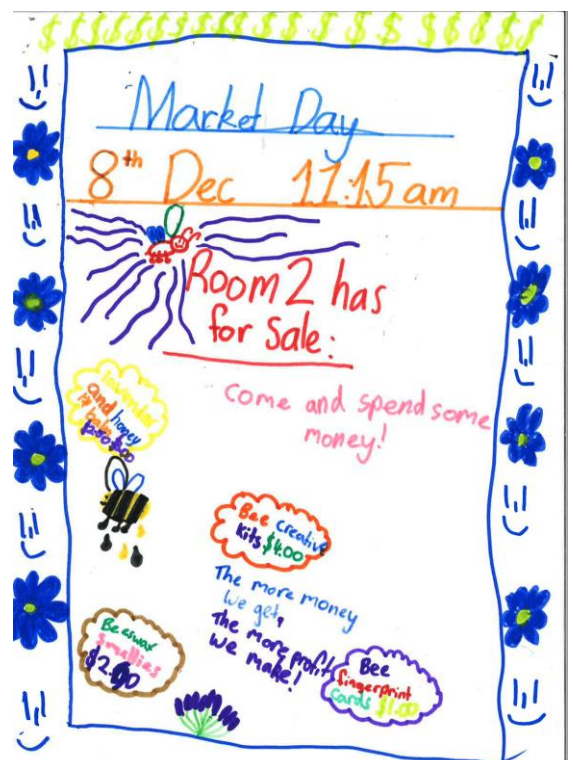 $ $ $ $ $ $ $ $ $ $ $ $ $ $ $ $ $ $ $
Market Day
8th Dec 11:15 am
Room 2 has
for Sale:
Lavender
and honey
balm
Come and spend some
money!
Bee creative
Kits $4.00
The more money
We get,
The more profit
We make!
Beeswax
Smellies
$2.00
Bee
fingerprint
cards $1.00